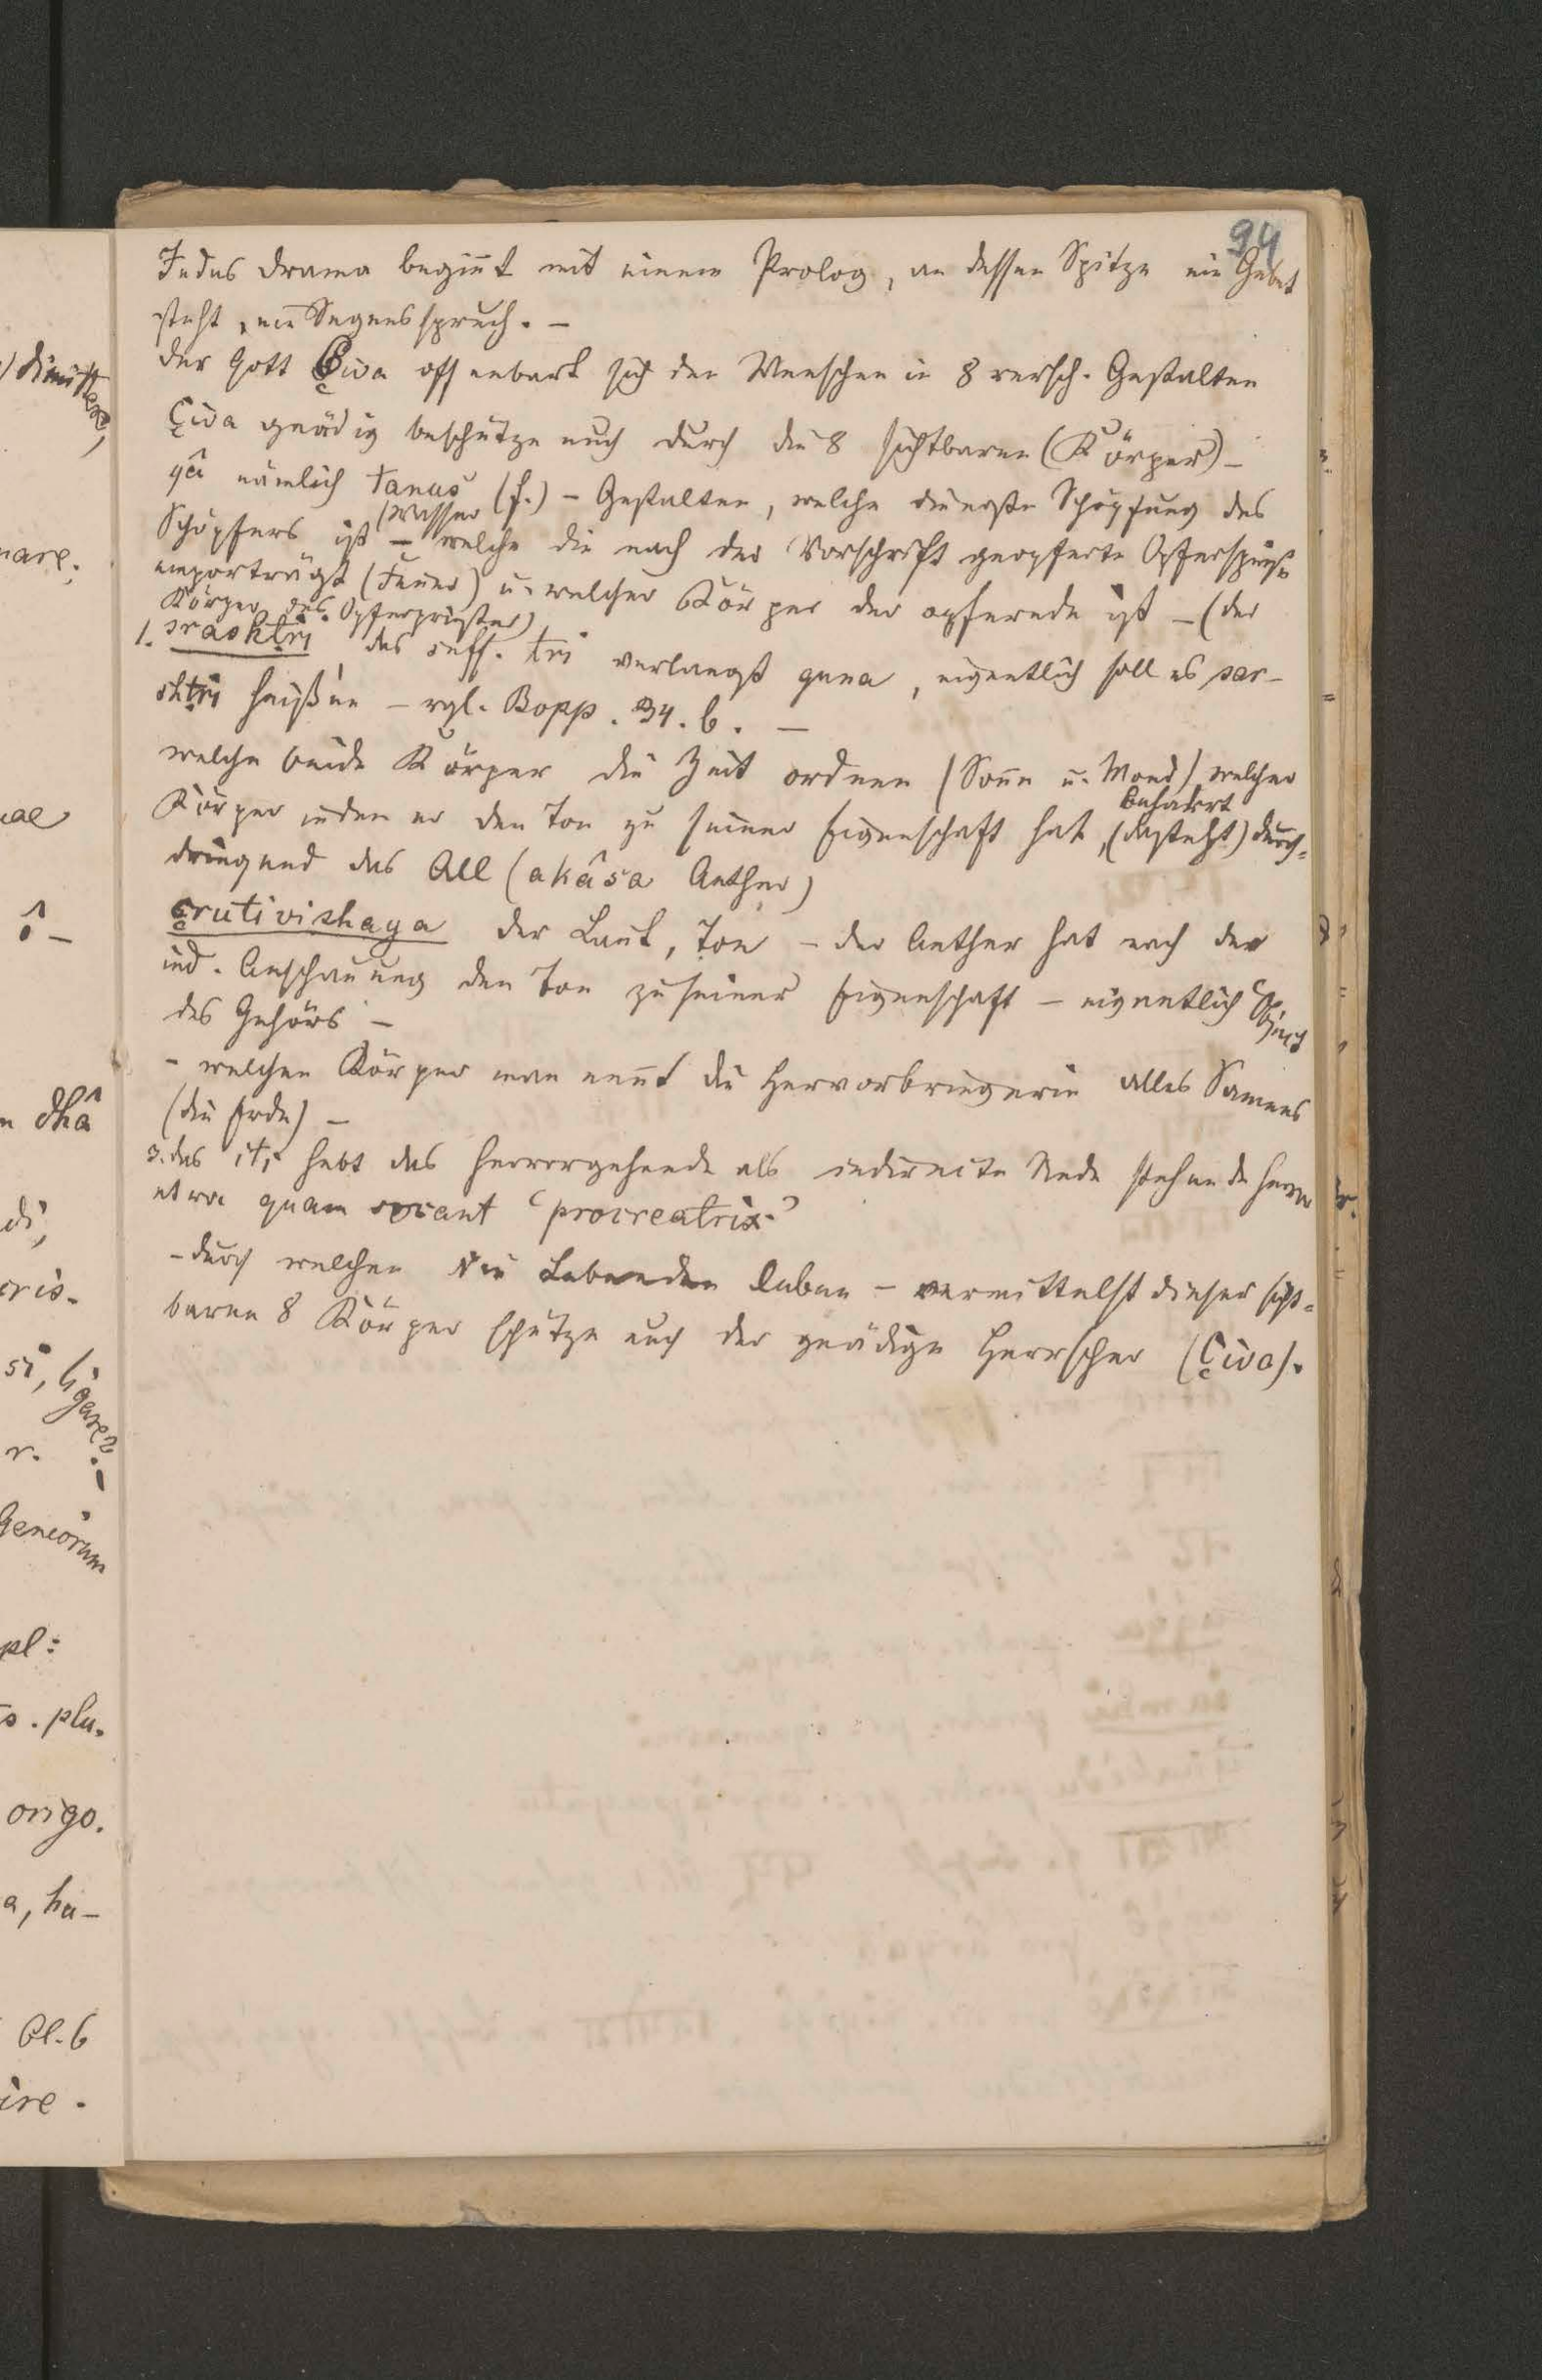 94
Jedes Drama begiñt mit einem Prolog, an dessen Spitze ein Gebet
steht, ein Segensspruch. –
Der Gott Çiva offenbart sich den Menschen in 8 versch. Gestalten
Çiva gnädig beschütze euch durch die 8 sichtbaren (Körper) –
yâ nämlich tanus (f.) – Gestalten, welche die erste Schöpfung des
Schöpfers ist (Wasser – welche die nach der Vorschrift geopferte Opferspeise
emporträgt (Feuer) u. welcher Körper der opfernde ist – (der
Körper des Opferpriesters)
1. srashtri das suff. tri verlangt guna, eigentlich soll es sar-
shtri heißen – vgl. Bopp. 34. b. –
welche beide Körper die Zeit ordnen (Soñe u. Mond) welcher
Körper indem er den Ton zu seiner Eigenschaft hat, (dasteht) durch=
beharrt
dringend das All (akâsa Aether)
çrutivishaya der Laut, Ton – der Aether hat nach der
ind. Anschauung den Ton zu seiner Eigenschaft – eigentlich Object
des Gehörs –
– welchen Körper man neñt die Hervorbringerin alles Samens
(die Erde) –
3. das iti hebt das hervorgehende als indirecte Rede stehende hervor
etwa quam vocant "procreatrix"
– durch welchen die Lebenden leben – vermittelst dieser sicht=
baren 8 Körper schütze euch der gnädige Herrscher (Çiva).
dimittere,
nare.
ae
î –
dhâ
di,
oris.
si, ligare?. –
r.
Geniorum
pl:
s. plu.
origo.
a, hu-
Cl. 6
ire.